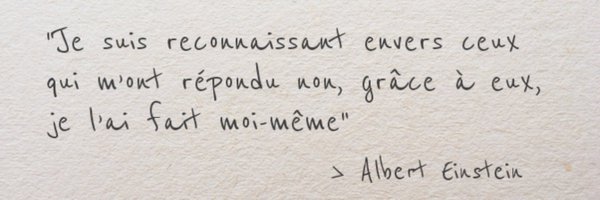 "Je suis reconnaissant envers ceux
qui m'ont répondu non, grâce à eux,
je l'ai fait moi-même"
> Albert Einstein